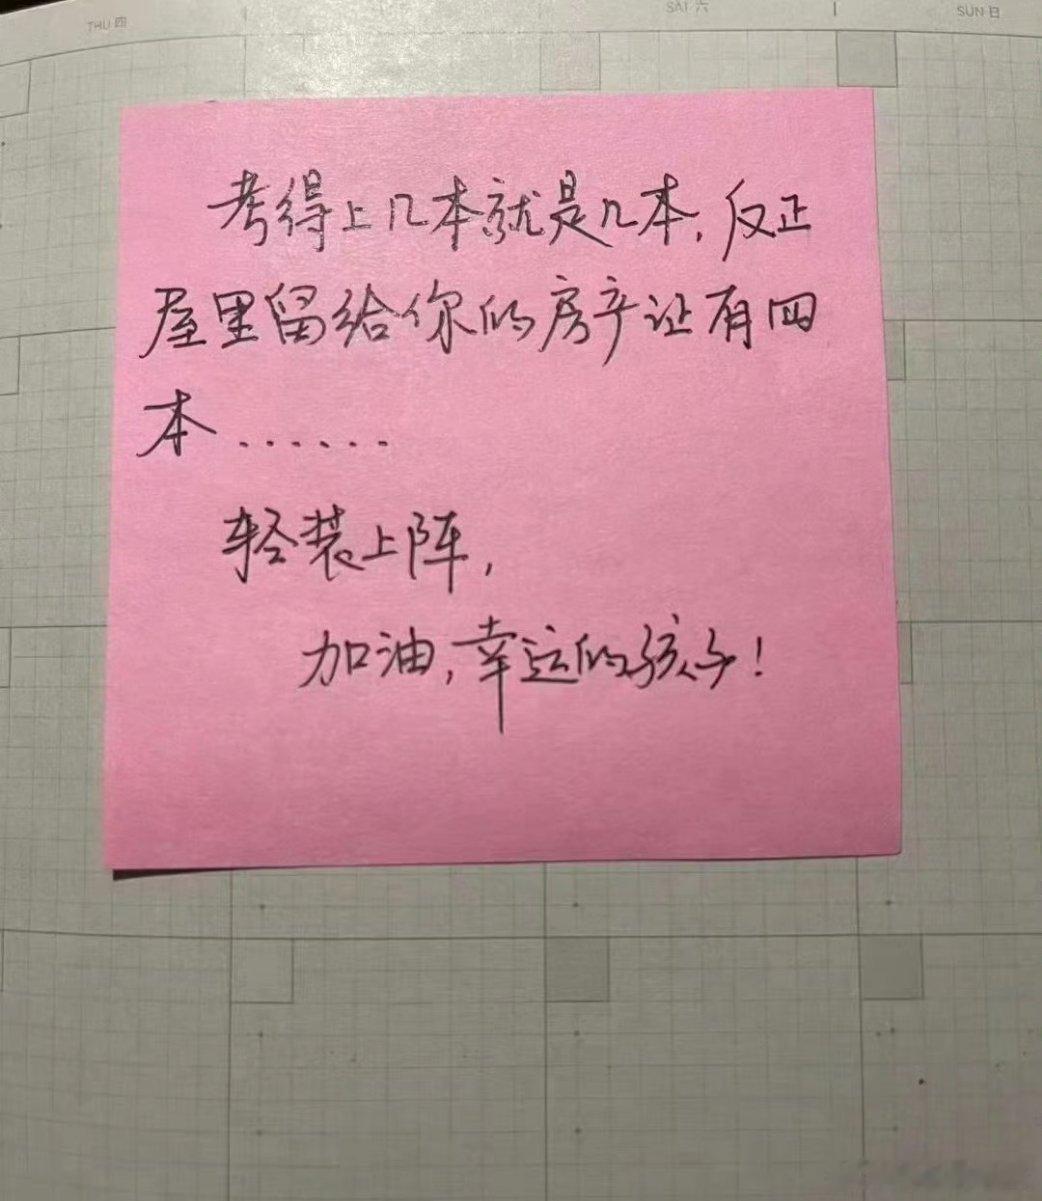 THU 四
SAT 六
SUN 日
考得上几本就是几本，反正
屋里留给你的房产证有四
本……
轻装上阵，
加油，幸运的孩子！